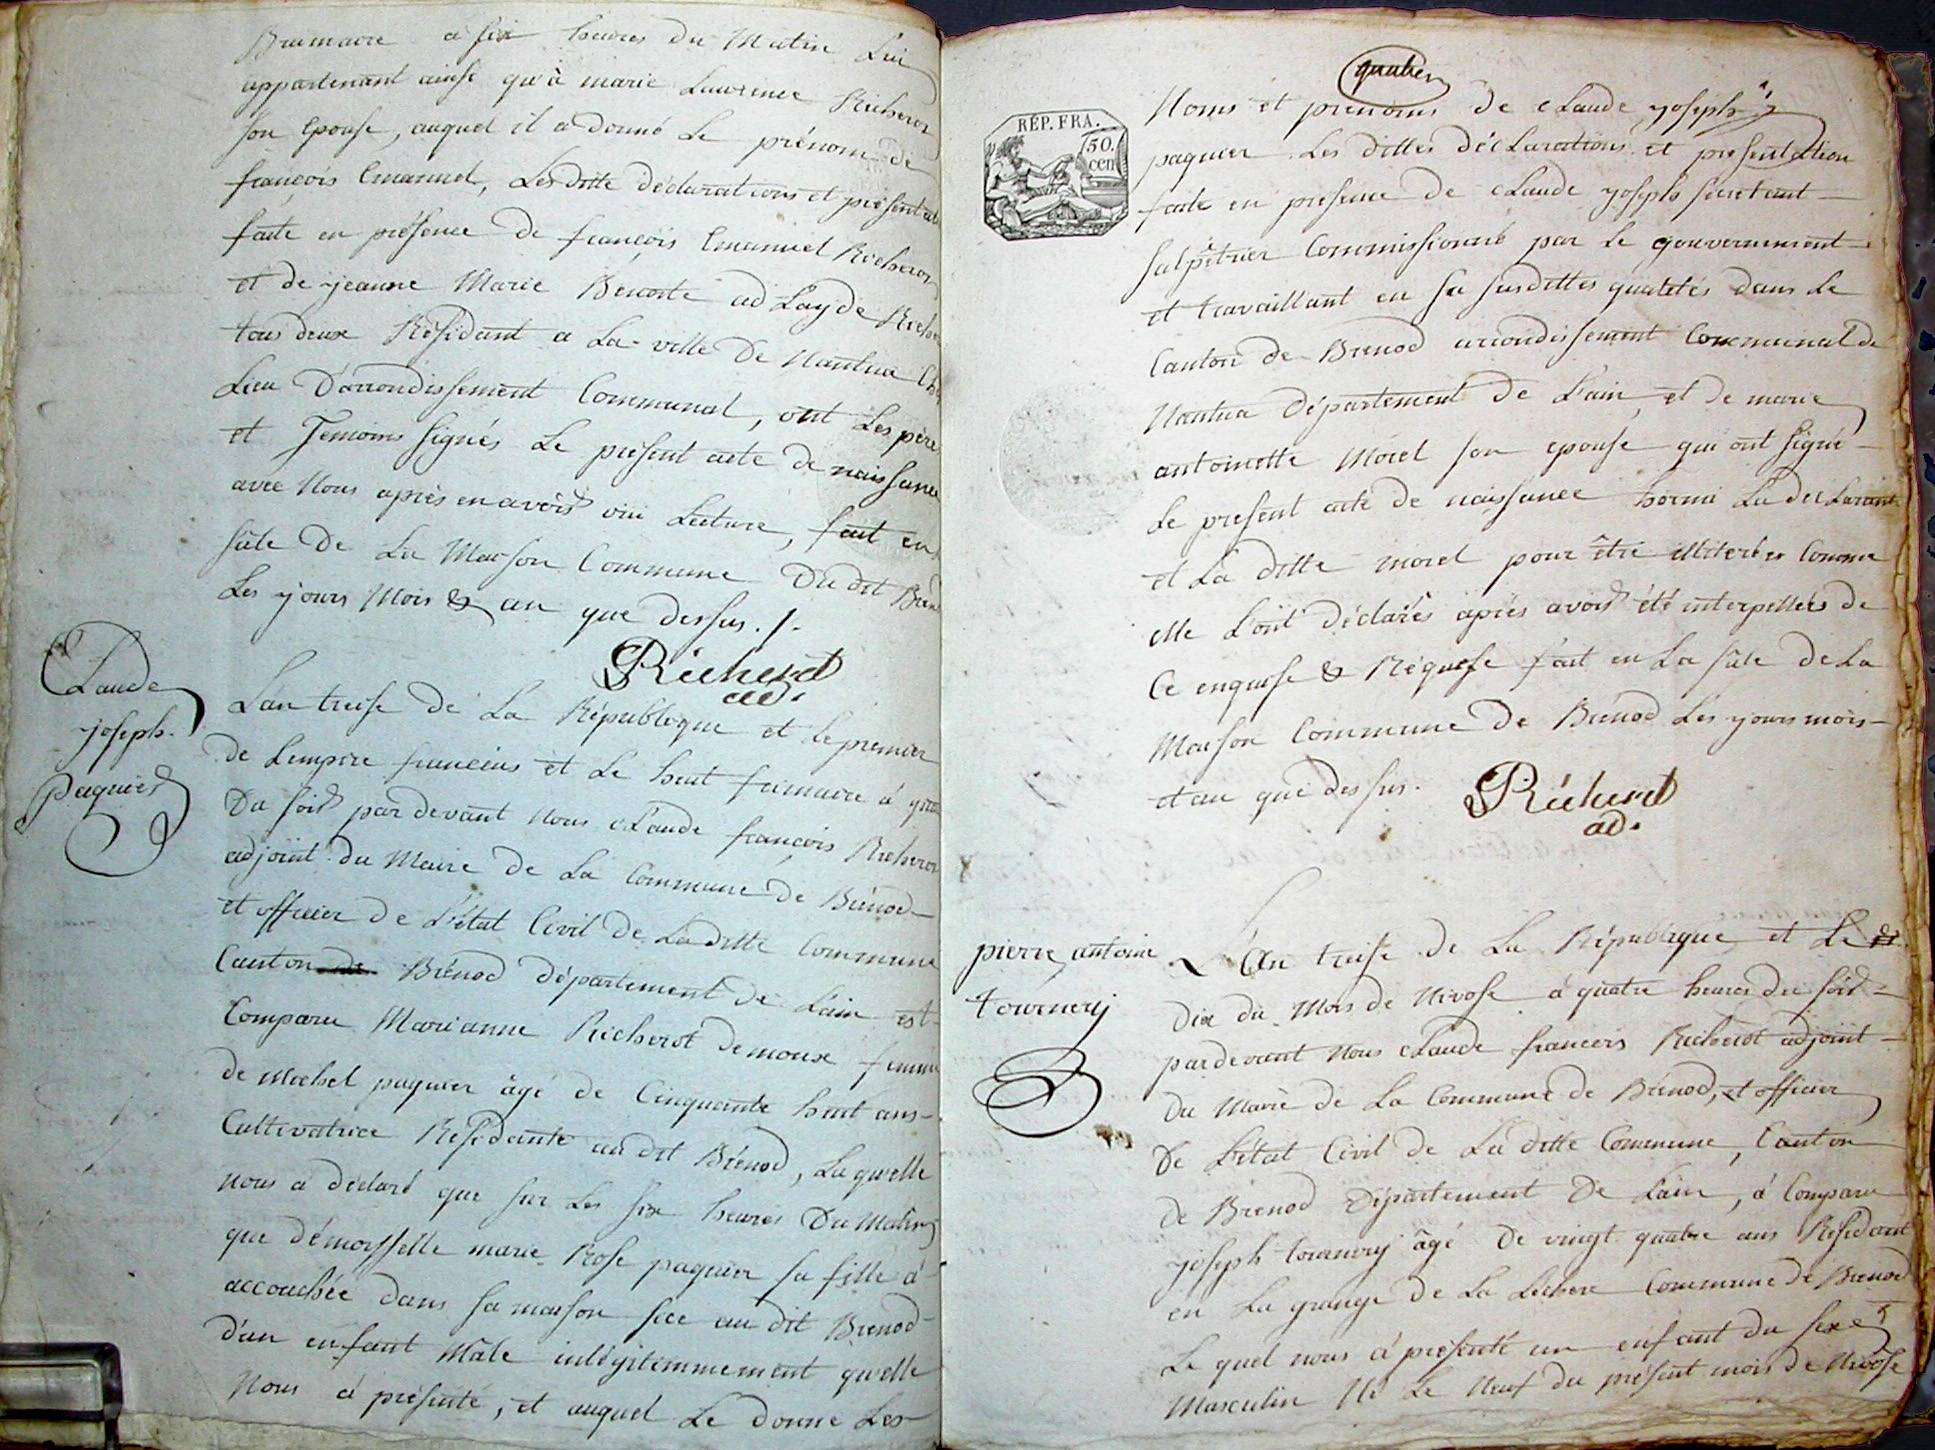 Brumaire a six heures du Matin Lui
appartenant ainsi qu'à marie Laurence Richerot
son Epouse, auquel il a donné Le prénom de
françois Emanuel, Lesditte déclarations et présentat
faite en présence de françois Emanuel Richerot
et de jeanne Marie Benoite adLayde Richer
tous deux Résidant a La ville De Nantua Ch
Lieu D'arrondissement Communal, ont Les père
et Temoins signés Le présent acte de naissance
avec Nous après en avoir oui Lecture, fait en
sale De La Maison Commune Du dit Brén
Les jours Mois & an que dessus ./.
Richerot
ad.
Claude
joseph
paquier
L'an treise de La République et le premier
de L'empire francais et Le huit frimaire à
Du soir par devant Nous cLaude françois Richerot
adjoint du Maire de La Commune de Brénod
et officier de L'état Civil de La ditte Commune
Canton de Brénod département de L'ain est
Comparu Marianne Richerot demoux femme
de Michel paquier âgé de Cinquante huit ans
Cultivatrice Résidante au dit Brénod, Laquelle
nous a déclaré que sur Les six heures Du Matin
que démoysselle marie Rose paquier sa fille à
accouchée dans sa maison sice au dit Brénod
d'un enfant Mâle inlégitimmement qu'elle
Nous à présenté, et auquel Le donne Les
quatre
RÉP. FRA.
50.
cen
Noms et prenoms de cLaude joseph
paquier Les dittes décLarations et presentation
faite en presence de cLaude joseph secretant
salpêtrier Commissionné par Le gouvernement
et travaillant en sa susdittes qualités dans Le
Canton de Brenod arrondissement Communal de
Nantua Département de L'ain, et de marie
antoinette Morel son epouse qui ont signé
Le present acte de naissance hormi La decLarante
et La ditte morel pour être illiterées Comme
elle L'ont déclarés après avoir été interpellées de
Ce enquise & Réquise fait en La sale de La
Maison Commune de Brénod Les jours mois
et an que dessus.
Richerot
ad.
pierre antoine
tournery
L'An treise de La République et Le
dix du Mois de Nivose à quatre heures du soir
pardevant Nous cLaude francois Richerot adjoint
du Maire de La Commune de Brénod, et officier
De L'état Civil de La ditte Commune, Canton
de Brenod Département De L'ain, à Comparu
joseph tournery âgé De vingt quatre ans Résidant
en La grange de La Lechere Commune de Brenod
Le quel nous à présenté un enfant du sexe
Masculin Né Le Neuf du présent mois de Nivose